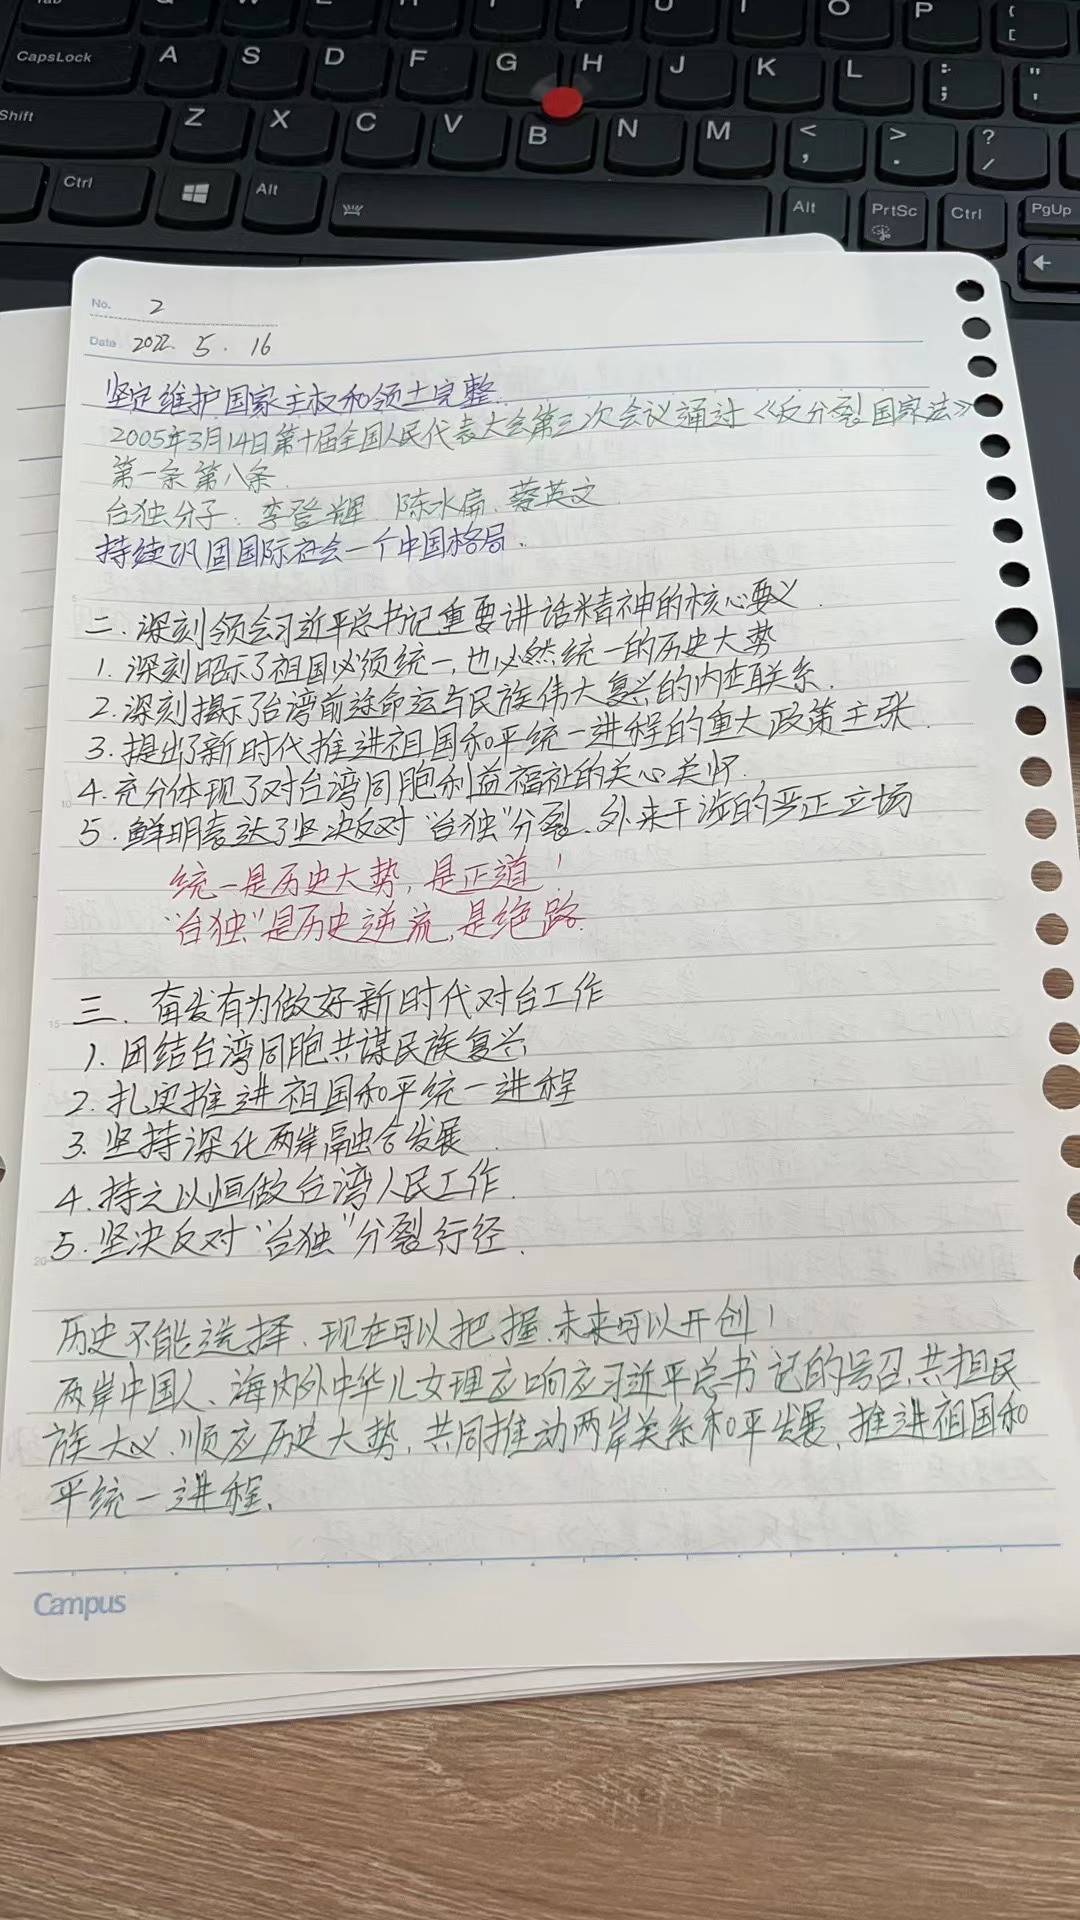 Tab
W
E
R
T
Y
U
I
O
P
{
[
CapsLock
A
S
D
F
G
H
J
K
L
:
;
"
'
Shift
Z
X
C
V
B
N
M
<
,
>
.
?
/
Ctrl
Alt
Alt
PrtSc
Ctrl
PgUp
No. 2
Date 2022. 5. 16
坚定维护国家主权和领土完整.
2005年3月14日第十届全国人民代表大会第三次会议通过《反分裂国家法》
第一条 第八条.
台独分子: 李登辉、陈水扁、蔡英文.
持续巩固国际社会一个中国格局.
二.深刻领会习近平总书记重要讲话精神的核心要义.
1.深刻昭示了祖国必须统一,也必然统一的历史大势
2.深刻揭示了台湾前途命运与民族伟大复兴的内在联系.
3.提出了新时代推进祖国和平统一进程的重大政策主张.
4.充分体现了对台湾同胞利益福祉的关心关怀.
5.鲜明表达了坚决反对“台独”分裂、外来干涉的严正立场
统一是历史大势,是正道!
“台独”是历史逆流,是绝路.
三. 奋发有为做好新时代对台工作
1.团结台湾同胞共谋民族复兴
2.扎实推进祖国和平统一进程
3.坚持深化两岸融合发展.
4.持之以恒做台湾人民工作.
5.坚决反对“台独”分裂行径.
历史不能选择、现在可以把握、未来可以开创!
两岸中国人、海内外中华儿女理应响应习近平总书记的号召,共担民
族大义、顺应历史大势,共同推动两岸关系和平发展、推进祖国和
平统一进程.
Campus